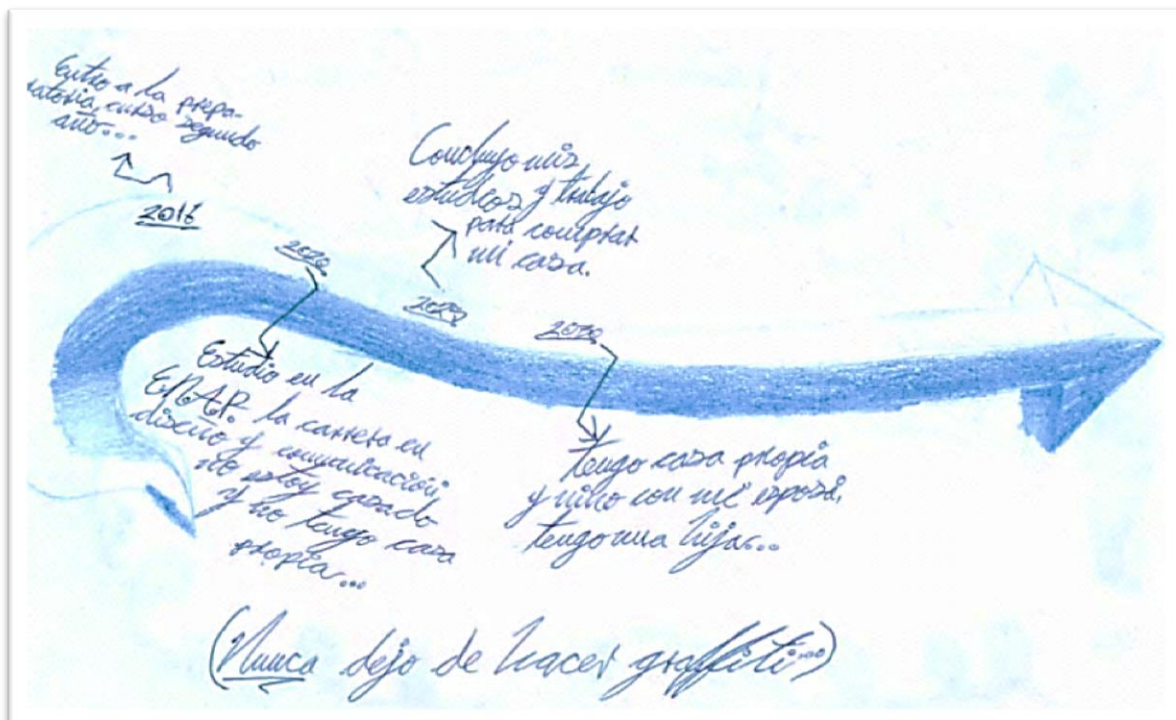 Entro a la prepa-
ratoria, curso segundo
año...
2016
2020
Estudio en la
E.N.A.P. la carrera en
diseño y comunicación,
no estoy casado
y no tengo casa
propia...
Concluyo mis
estudios y trabajo
para comprar
mi casa.
2030
tengo casa propia
y vivo con mi esposa,
tengo una hija...
(Nunca dejo de hacer graffiti...)